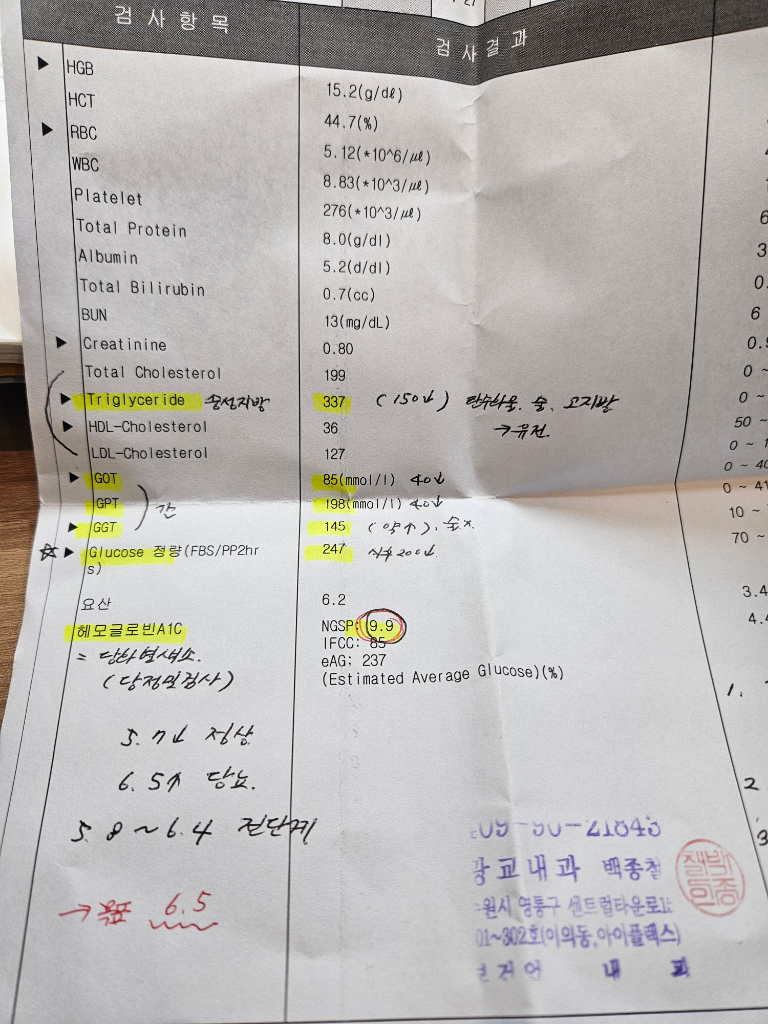 검사항목 검사결과
▶ HGB 15.2(g/dℓ)
HCT 44.7(%)
▶ RBC 5.12(*10^6/㎕)
WBC 8.83(*10^3/㎕)
Platelet 276(*10^3/㎕)
Total Protein 8.0(g/dl)
Albumin 5.2(d/dl)
Total Bilirubin 0.7(cc)
BUN 13(mg/dL)
▶ Creatinine 0.80
Total Cholesterol 199
▶ Triglyceride 중성지방 337 (150↓) 탄수화물, 술, 고지방
→유전.
▶ HDL-Cholesterol 36
LDL-Cholesterol 127
▶ GOT 85(mmol/l) 40↓
GPT 간 198(mmol/l) 40↓
▶ GGT 145 (약↑), 술x.
☆ ▶ Glucose 정량(FBS/PP2hr 247 식후 200↓
s)
요산 6.2
헤모글로빈A1C NGSP: 9.9
IFCC: 85
= 당화혈색소. eAG: 237
(당정밀검사) (Estimated Average Glucose)(%)
5.7↓ 정상
6.5↑ 당뇨.
5.8~6.4 전단계
→목표 6.5
09-90-21843
광교내과 백종철
원시 영통구 센트럴타운로
01~302호(이의동,아이플렉스)
내 과
6
3
0.
6
0.9
0 ~
0 ~
50 ~
0 ~ 1
0 ~ 40
0 ~ 41
10 ~
70 ~
3.4
4.4
1.
2
3